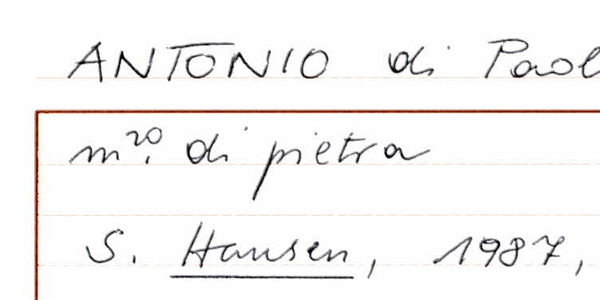 ANTONIO di Paol
m.ro di pietra
S. Hansen, 1987,